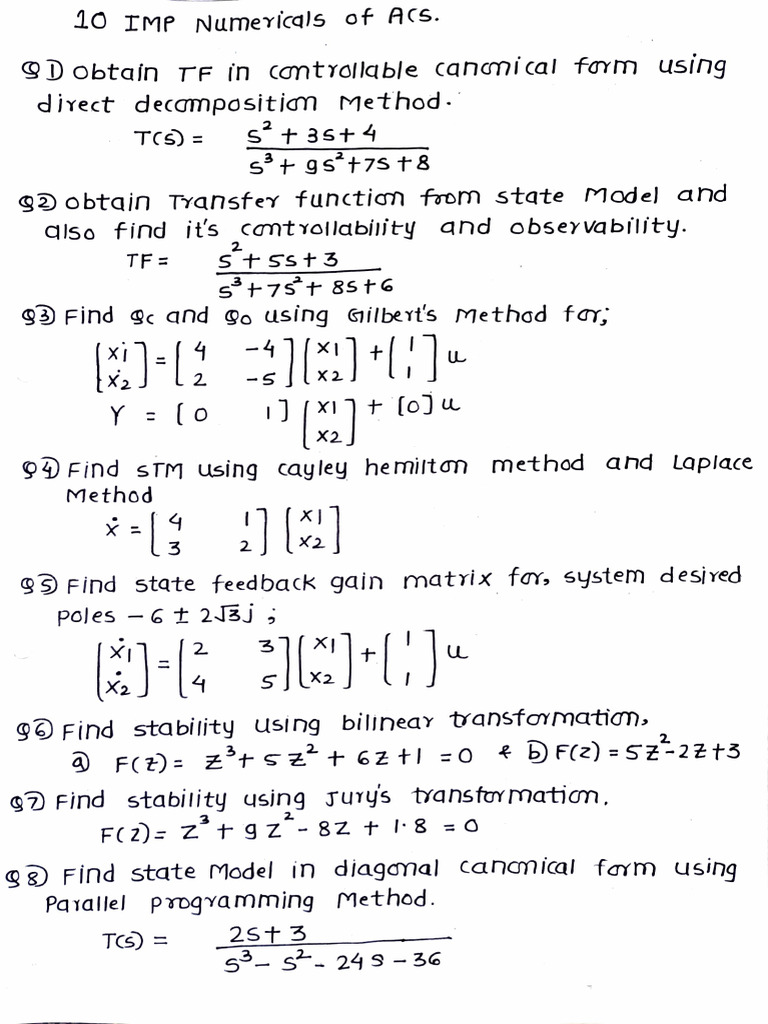 10 IMP Numericals of ACS.
Q1) Obtain TF in controllable canonical form using
direct decomposition Method.
T(s) = s² + 3s + 4 / s³ + 9s² + 7s + 8
Q2) obtain Transfer function from state Model and
also find it's controllability and observability.
TF = s² + 5s + 3 / s³ + 7s² + 8s + 6
Q3) Find Qc and Qo using Gilbert's Method for;
[ẋ1 ẋ2] = [4 -4 2 -5] [x1 x2] + [1 1] u
Y = [0 1] [x1 x2] + [0] u
Q4) Find STM using cayley hemilton method and Laplace
Method
ẋ = [4 1 3 2] [x1 x2]
Q5) Find state feedback gain matrix for, system desired
poles - 6 ± 2√3j ;
[ẋ1 ẋ2] = [2 3 4 5] [x1 x2] + [1 1] u
Q6) Find stability using bilinear transformation,
a) F(z) = z³ + 5z² + 6z + 1 = 0 & b) F(z) = 5z² - 2z + 3
Q7) Find stability using Jury's transformation.
F(z) = z³ + 9z² - 8z + 1.8 = 0
Q8) Find state Model in diagonal canonical form using
Parallel programming Method.
T(s) = 2s + 3 / s³ - s² - 24s - 36